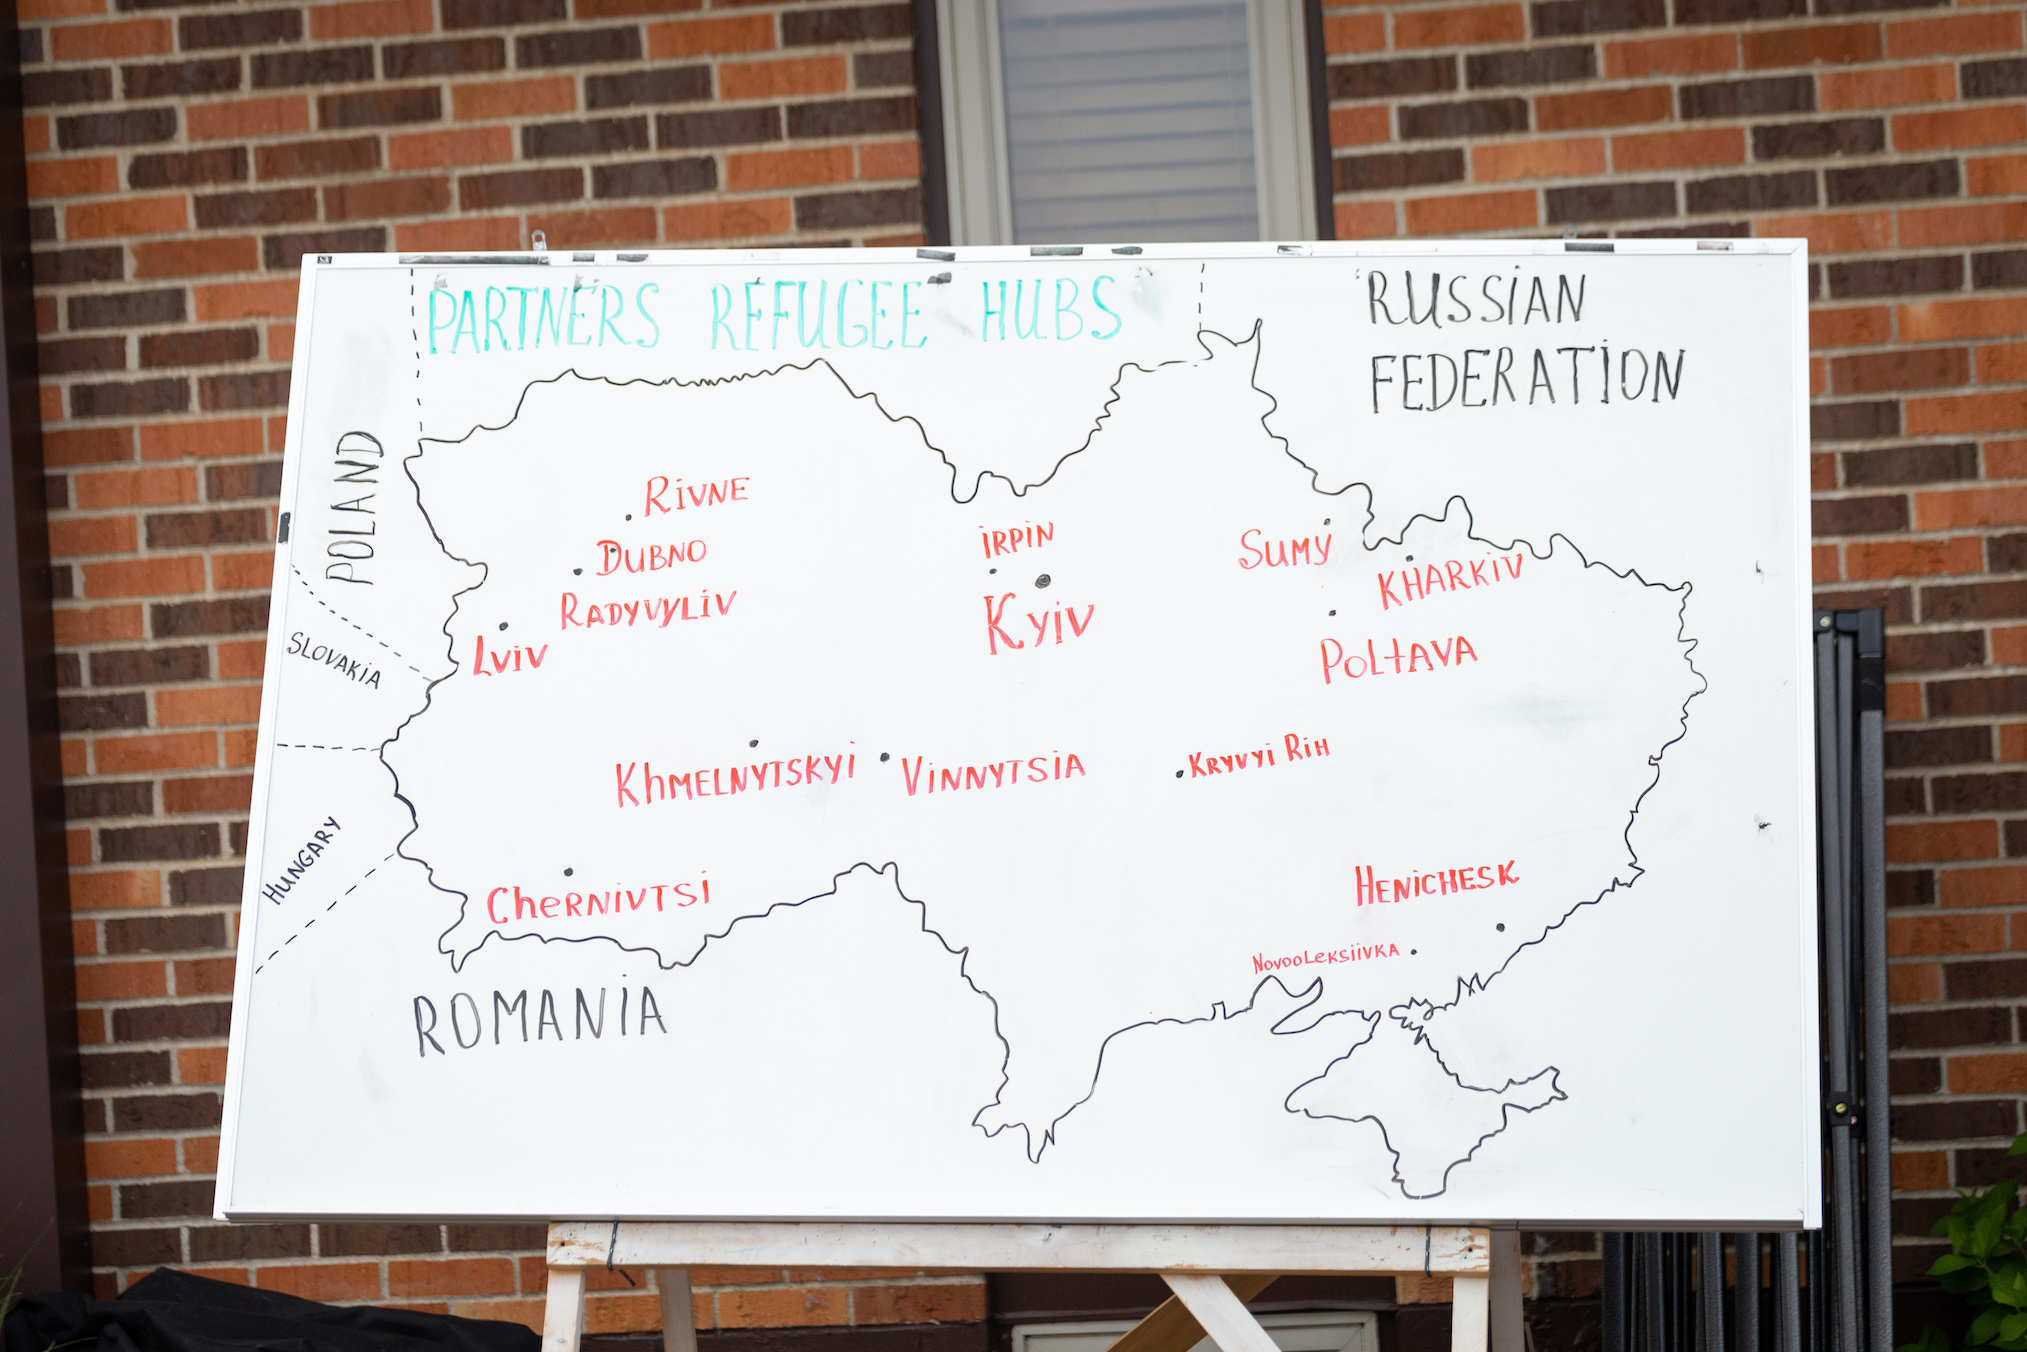 PARTNERS REFUGEE HUBS
RUSSIAN
FEDERATION
POLAND
SLOVAKIA
HUNGARY
ROMANIA
RIVNE
DUBNO
RADYVYLIV
LVIV
IRPIN
KYIV
SUMY
KHARKIV
POLTAVA
KHMELNYTSKYI
VINNYTSIA
KRYVYI RIH
CHERNIVTSI
HENICHESK
NOVOOLEKSIIVKA